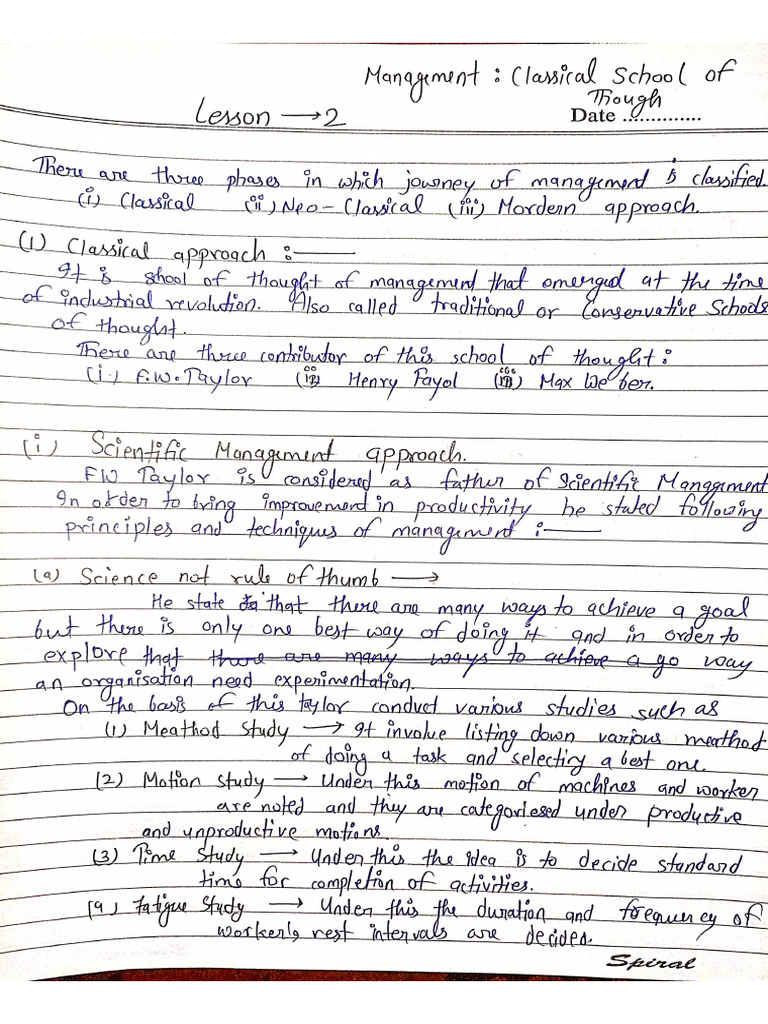 Management : Classical School of
Though
Lesson → 2
Date ..............
There are three phases in which journey of management is classified.
(i) Classical (ii) Neo-Classical (iii) Mordern approach.
(1) Classical approach :—
It is shool of thought of management that omerged at the time
of industrial revolution. Also called traditional or Conservative Schools
of thought.
There are three contributor of this school of thought :
(i.) F.W. Taylor (ii) Henry Fayol (iii) Max We ber.
(i) Scientific Management approach.
FW Taylor is considered as father of Scientific Management
In order to bring improvement in productivity he stated following
principles and techniques of management :—
(a) Science not rule of thumb →
He state that there are many ways to achieve a goal
but there is only one best way of doing it and in order to
explore that there are many ways to achieve a go way
an organisation need experimentation.
On the basis of this taylor conduct various studies such as
(1) Meathod Study → It involve listing down various meathod
of doing a task and selecting a best one.
(2) Motion Study → Under this motion of machines and worker
are noted and they are categoriesed under productive
and unproductive motions.
(3) Time Study → Under this the idea is to decide standard
time for completion of activities.
(4) Fatigue Study → Under this the duration and frequency of
worker's rest intervals are decided.
Spiral